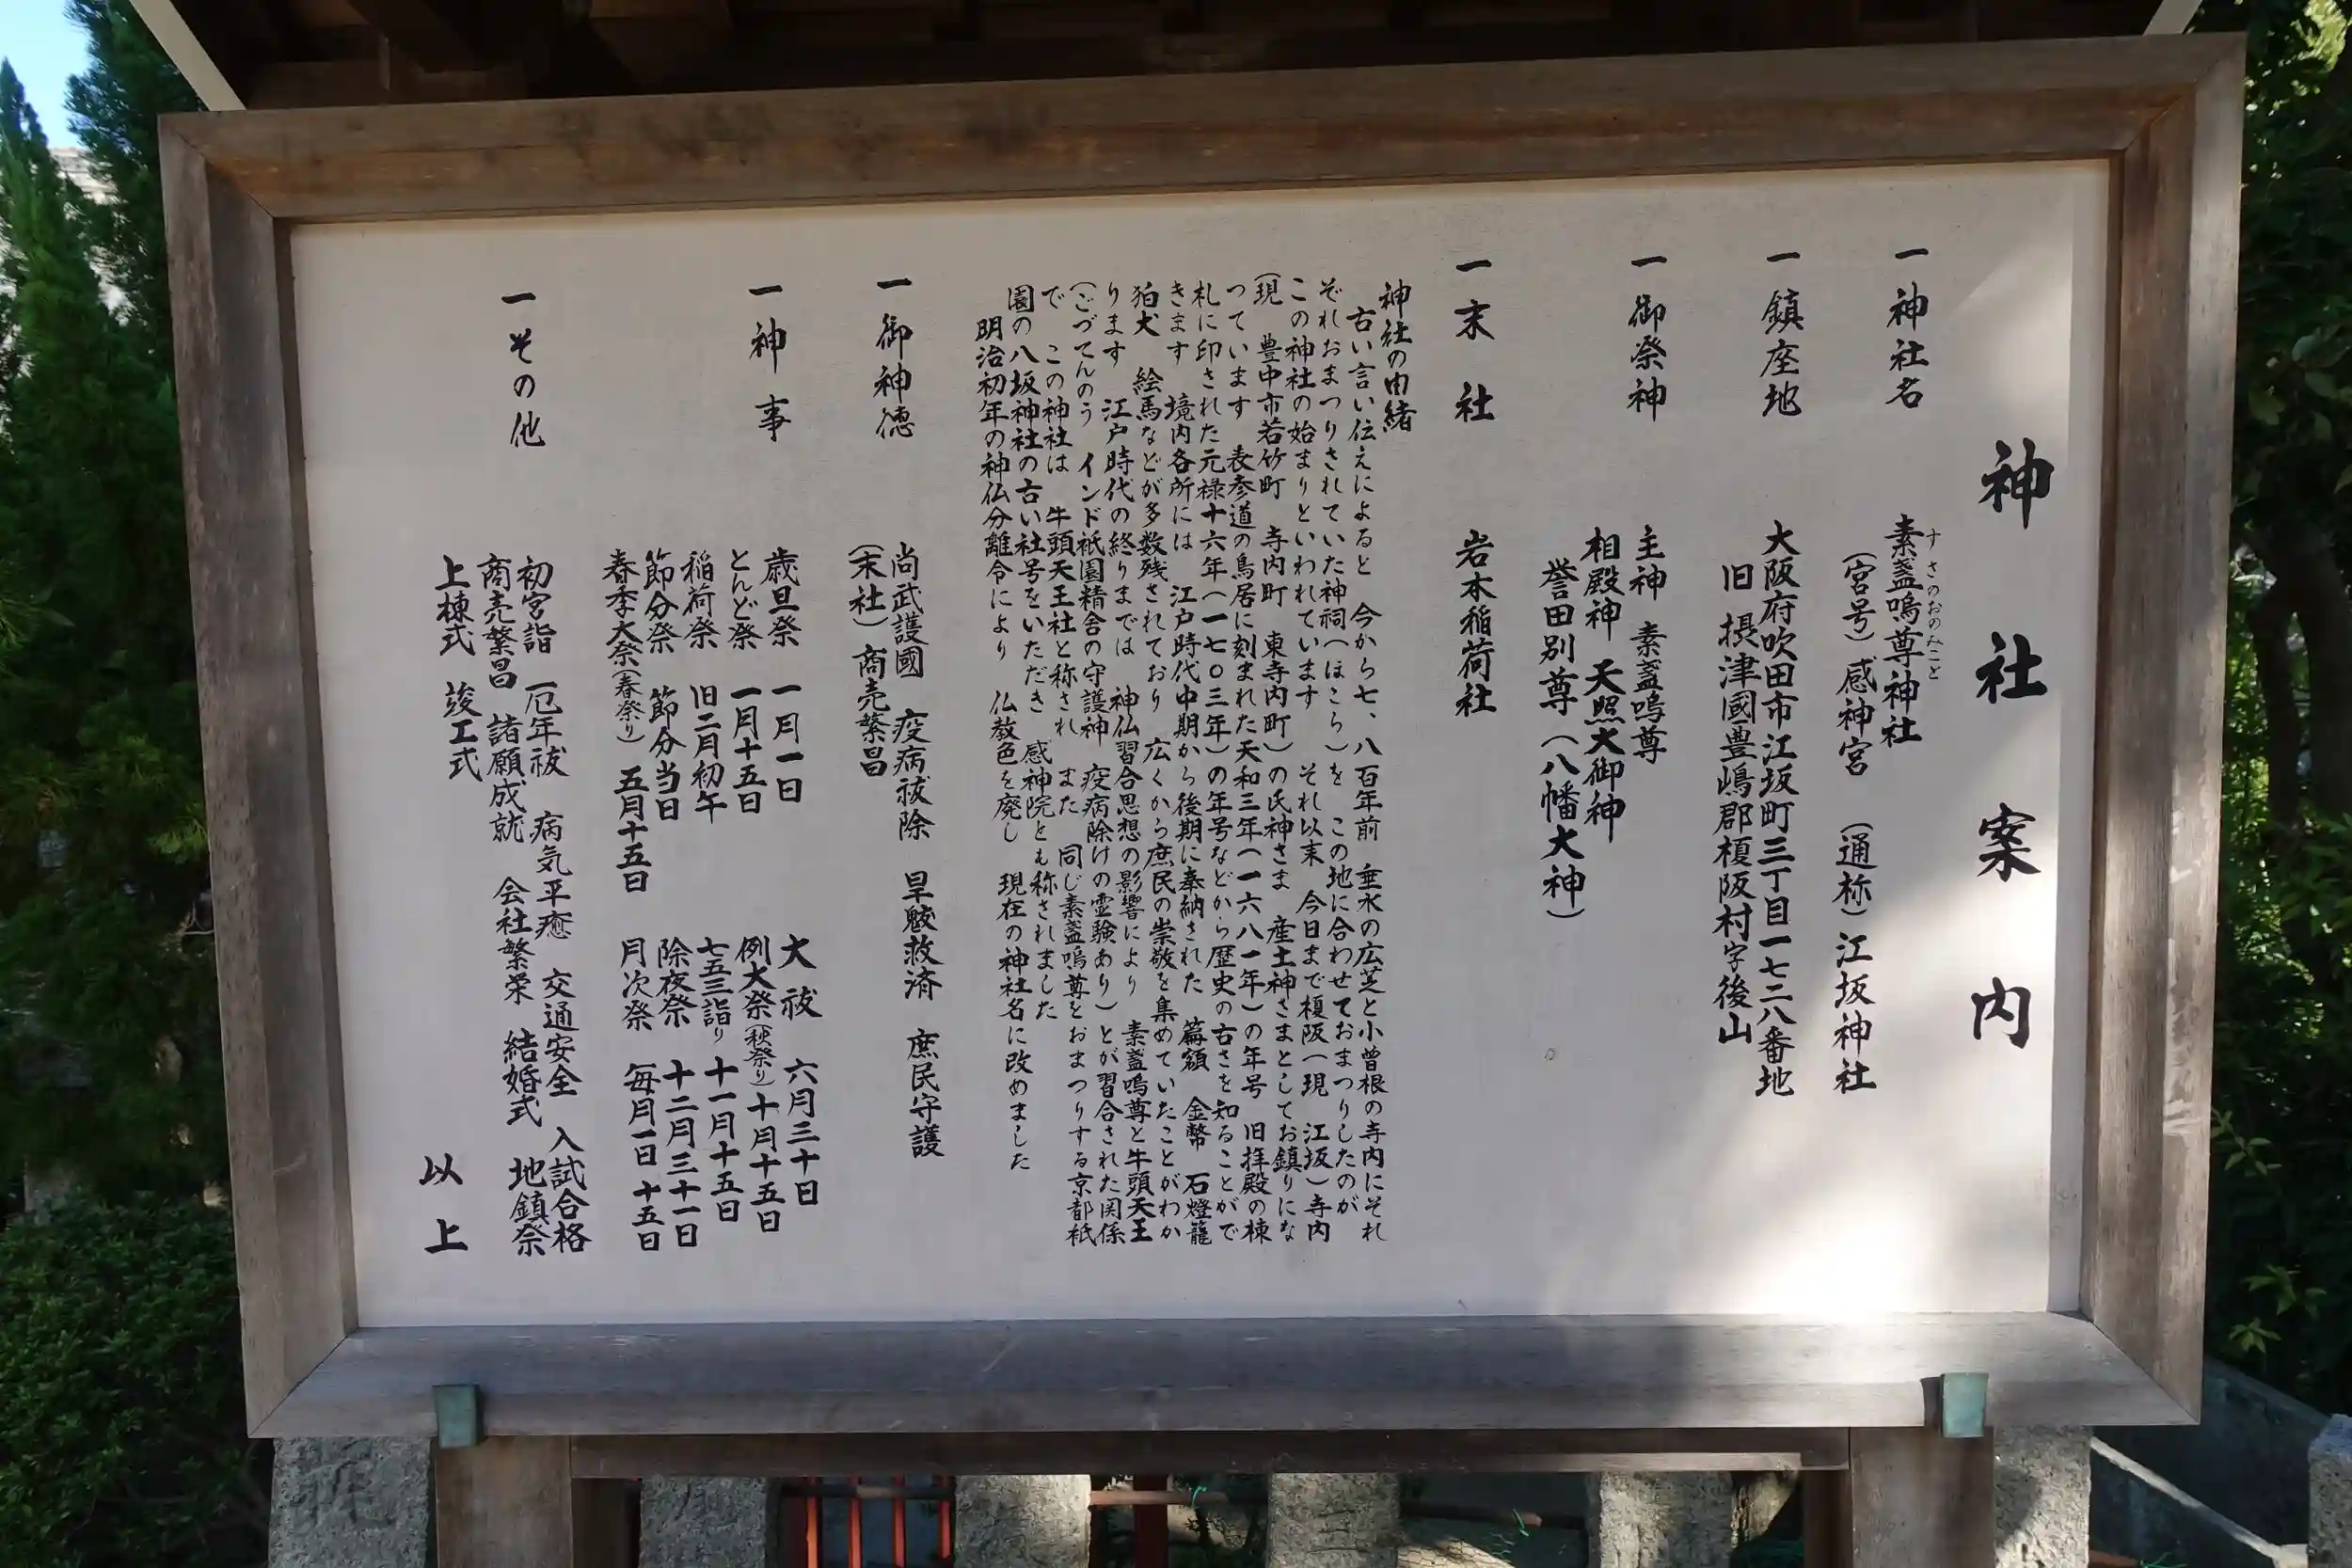 神社案内
一 神社名 素盞嗚尊神社
すさのおのみこと
(宮号)感神宮 (通称)江坂神社
一 鎮座地 大阪府吹田市江坂町三丁目一七二八番地
旧 摂津國豊嶋郡榎阪村字後山
一 御祭神 主神 素盞嗚尊
相殿神 天照大御神
誉田別尊(八幡大神)
一 末社 岩本稲荷社
神社の由緒
古い言い伝えによると 今から七、八百年前 垂水の広芝と小曽根の寺内にそれ
ぞれおまつりされていた神祠(ほこら)を この地に合わせておまつりしたのが
この神社の始まりといわれています それ以来 今日まで榎阪(現 江坂)寺内
(現 豊中市若竹町 寺内町 東寺内町)の氏神さま 産土神さまとしてお鎮りにな
っています 表参道の鳥居に刻まれた天和三年(一六八一年)の年号 旧拝殿の棟
札に印された元禄十六年(一七〇三年)の年号などから歴史の古さを知ることがで
きます 境内各所には 江戸時代中期から後期に奉納された 篇額 金幣 石燈籠
狛犬 絵馬などが多数残されており 広くから庶民の崇敬を集めていたことがわか
ります 江戸時代の終りまでは 神仏習合思想の影響により 素盞嗚尊と牛頭天王
(ごづてんのう インド祇園精舎の守護神 疫病除けの霊験あり)とが習合された関係
で この神社は 牛頭天王社と称され また 同じ素盞嗚尊をおまつりする京都祇
園の八坂神社の古い社号をいただき 感神院とも称されました
明治初年の神仏分離令により 仏教色を廃し 現在の神社名に改めました
一 御神徳 尚武護國 疫病祓除 旱魃救済 庶民守護
(末社)商売繁昌
一 神事 歳旦祭 一月一日 大祓 六月三十日
とんど祭 一月十五日 例大祭(秋祭り)十月十五日
稲荷祭 旧二月初午 七五三詣り 十一月十五日
節分祭 節分当日 除夜祭 十二月三十一日
春季大祭(春祭り) 五月十五日 月次祭 毎月一日 十五日
一 その他 初宮詣 厄年祓 病気平癒 交通安全 入試合格
商売繁昌 諸願成就 会社繁栄 結婚式 地鎮祭
上棟式 竣工式
以上